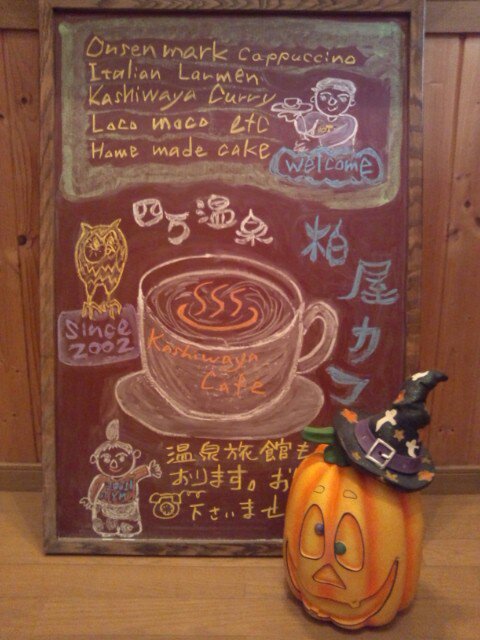 Onsenmark cappuccino
Italian Larmen
Kashiwaya Curry
Loco moco etc
Home made cake
Welcome
四万温泉
柏屋カフ
Since
2002
Kashiwaya
Cafe
温泉旅館も
おります。お
下さいませ